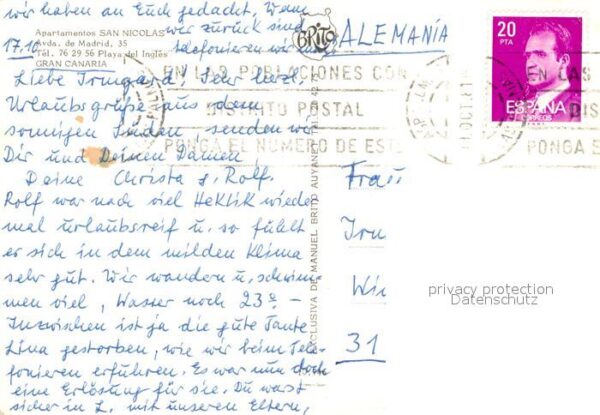 wir haben an Euch gedacht. Wenn
wir zurück sind
telefonieren wir mal
17.10.
Apartamentos SAN NICOLAS
Avda. de Madrid, 35
Tél. 76 29 56 Playa del Inglés
GRAN CANARIA
Liebe Irmgard! Sehr herzl.
Urlaubsgrüße aus dem
sonnigen Süden senden wir
Dir und Deinen Damen
Deine Christa u. Rolf.
Rolf war nach viel Hektik wieder
mal urlaubsreif u. so fühlt
er sich in dem milden Klima
sehr gut. Wir wandern u. schwim-
men viel, Wasser noch 23° –
Inzwischen ist ja die gute Tante
Lina gestorben, wie wir beim Tele-
fonieren erfuhren. Es war nun doch
eine Erlösung für sie. Du warst
sicher in L. mit unseren Eltern,
BRITO
EXCLUSIVA DE MANUEL BRITO AUYANET
ALEMANÍA
20
PTA
ESPAÑA
CORREOS
EN LAS POBLACIONES CON
DISTRITO POSTAL
PONGA EL NUMERO DE ESTE
OCT.81
EN LAS
DIS
PONGA E
Frau
Irm
Wi
31
privacy protection
Datenschutz